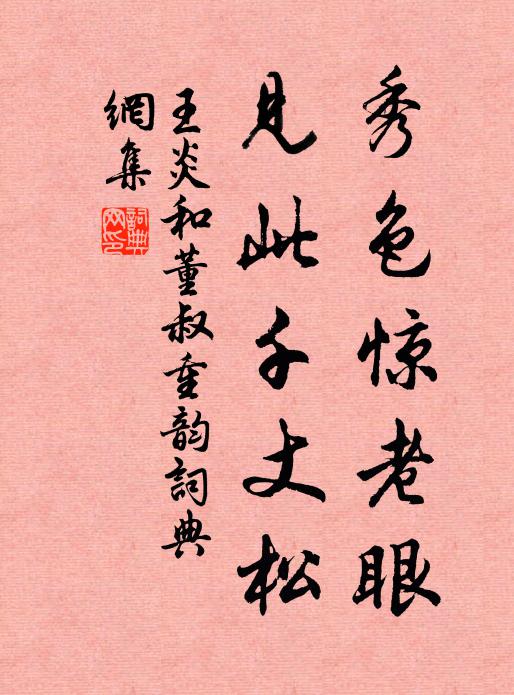 秀色惊老眼
见此千丈松
王炎和董叔重韵詞典
網集
詞典
网印